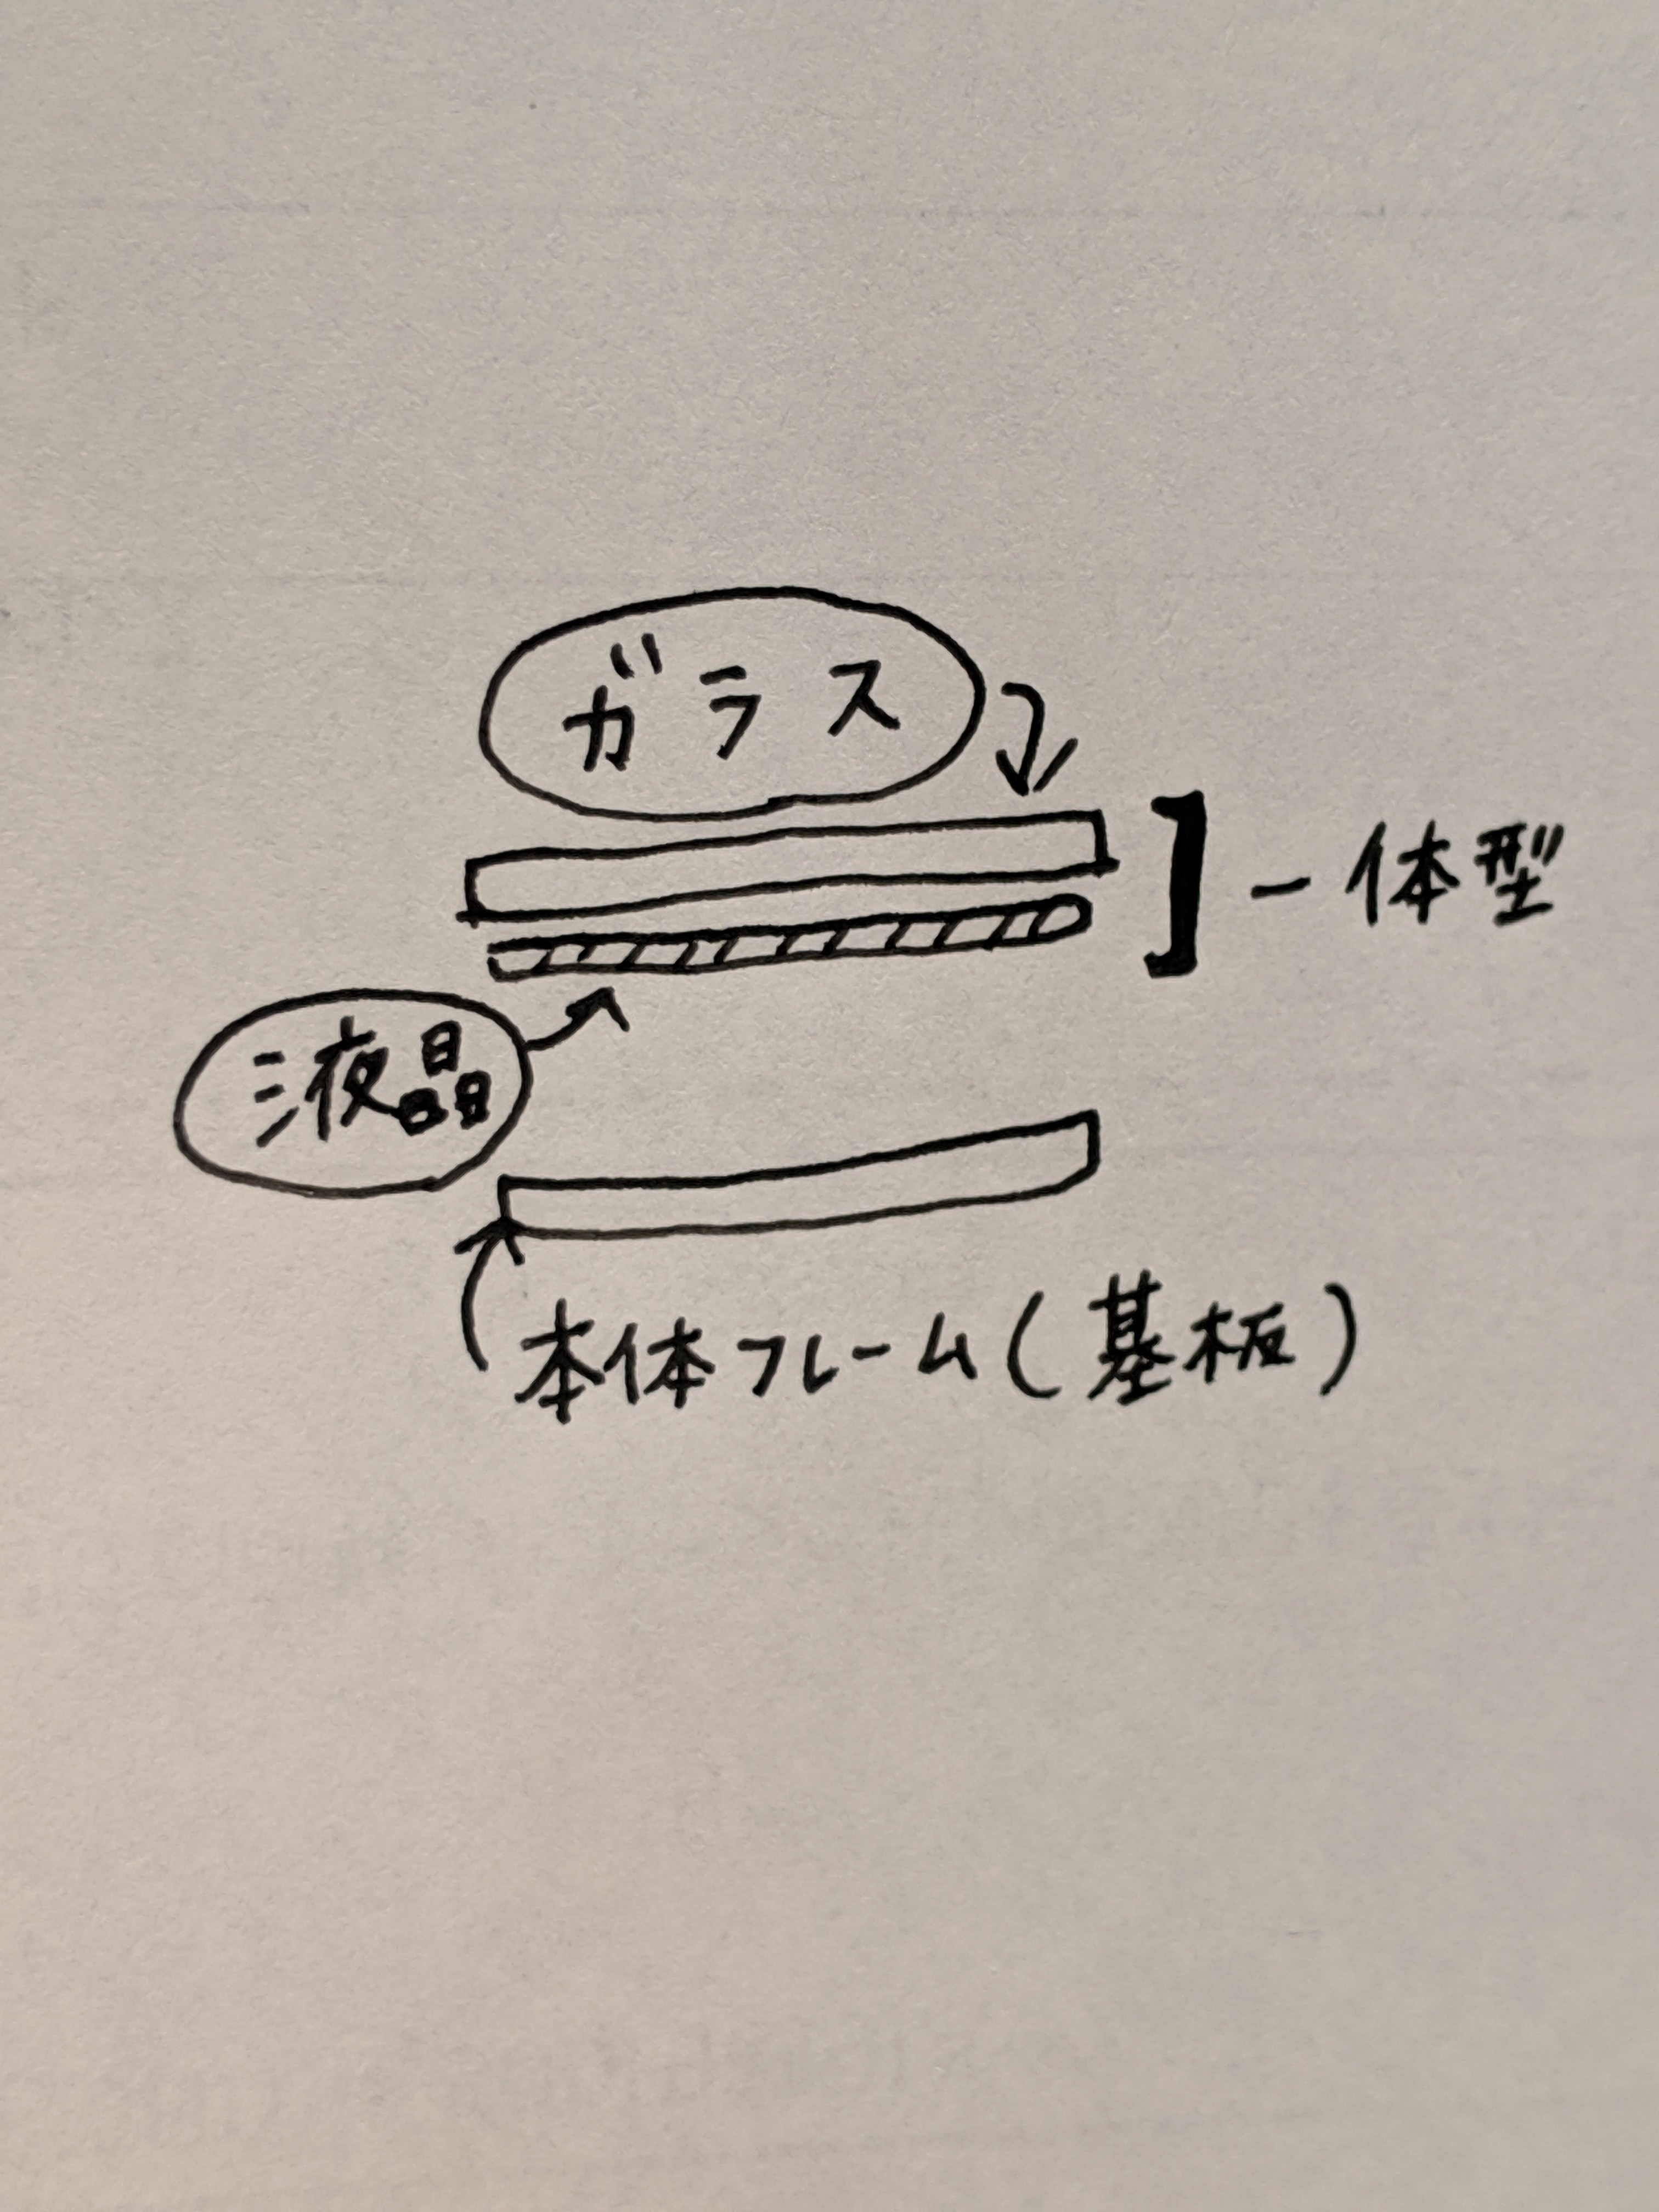 ガラス
一体型
液晶
本体フレーム(基板)